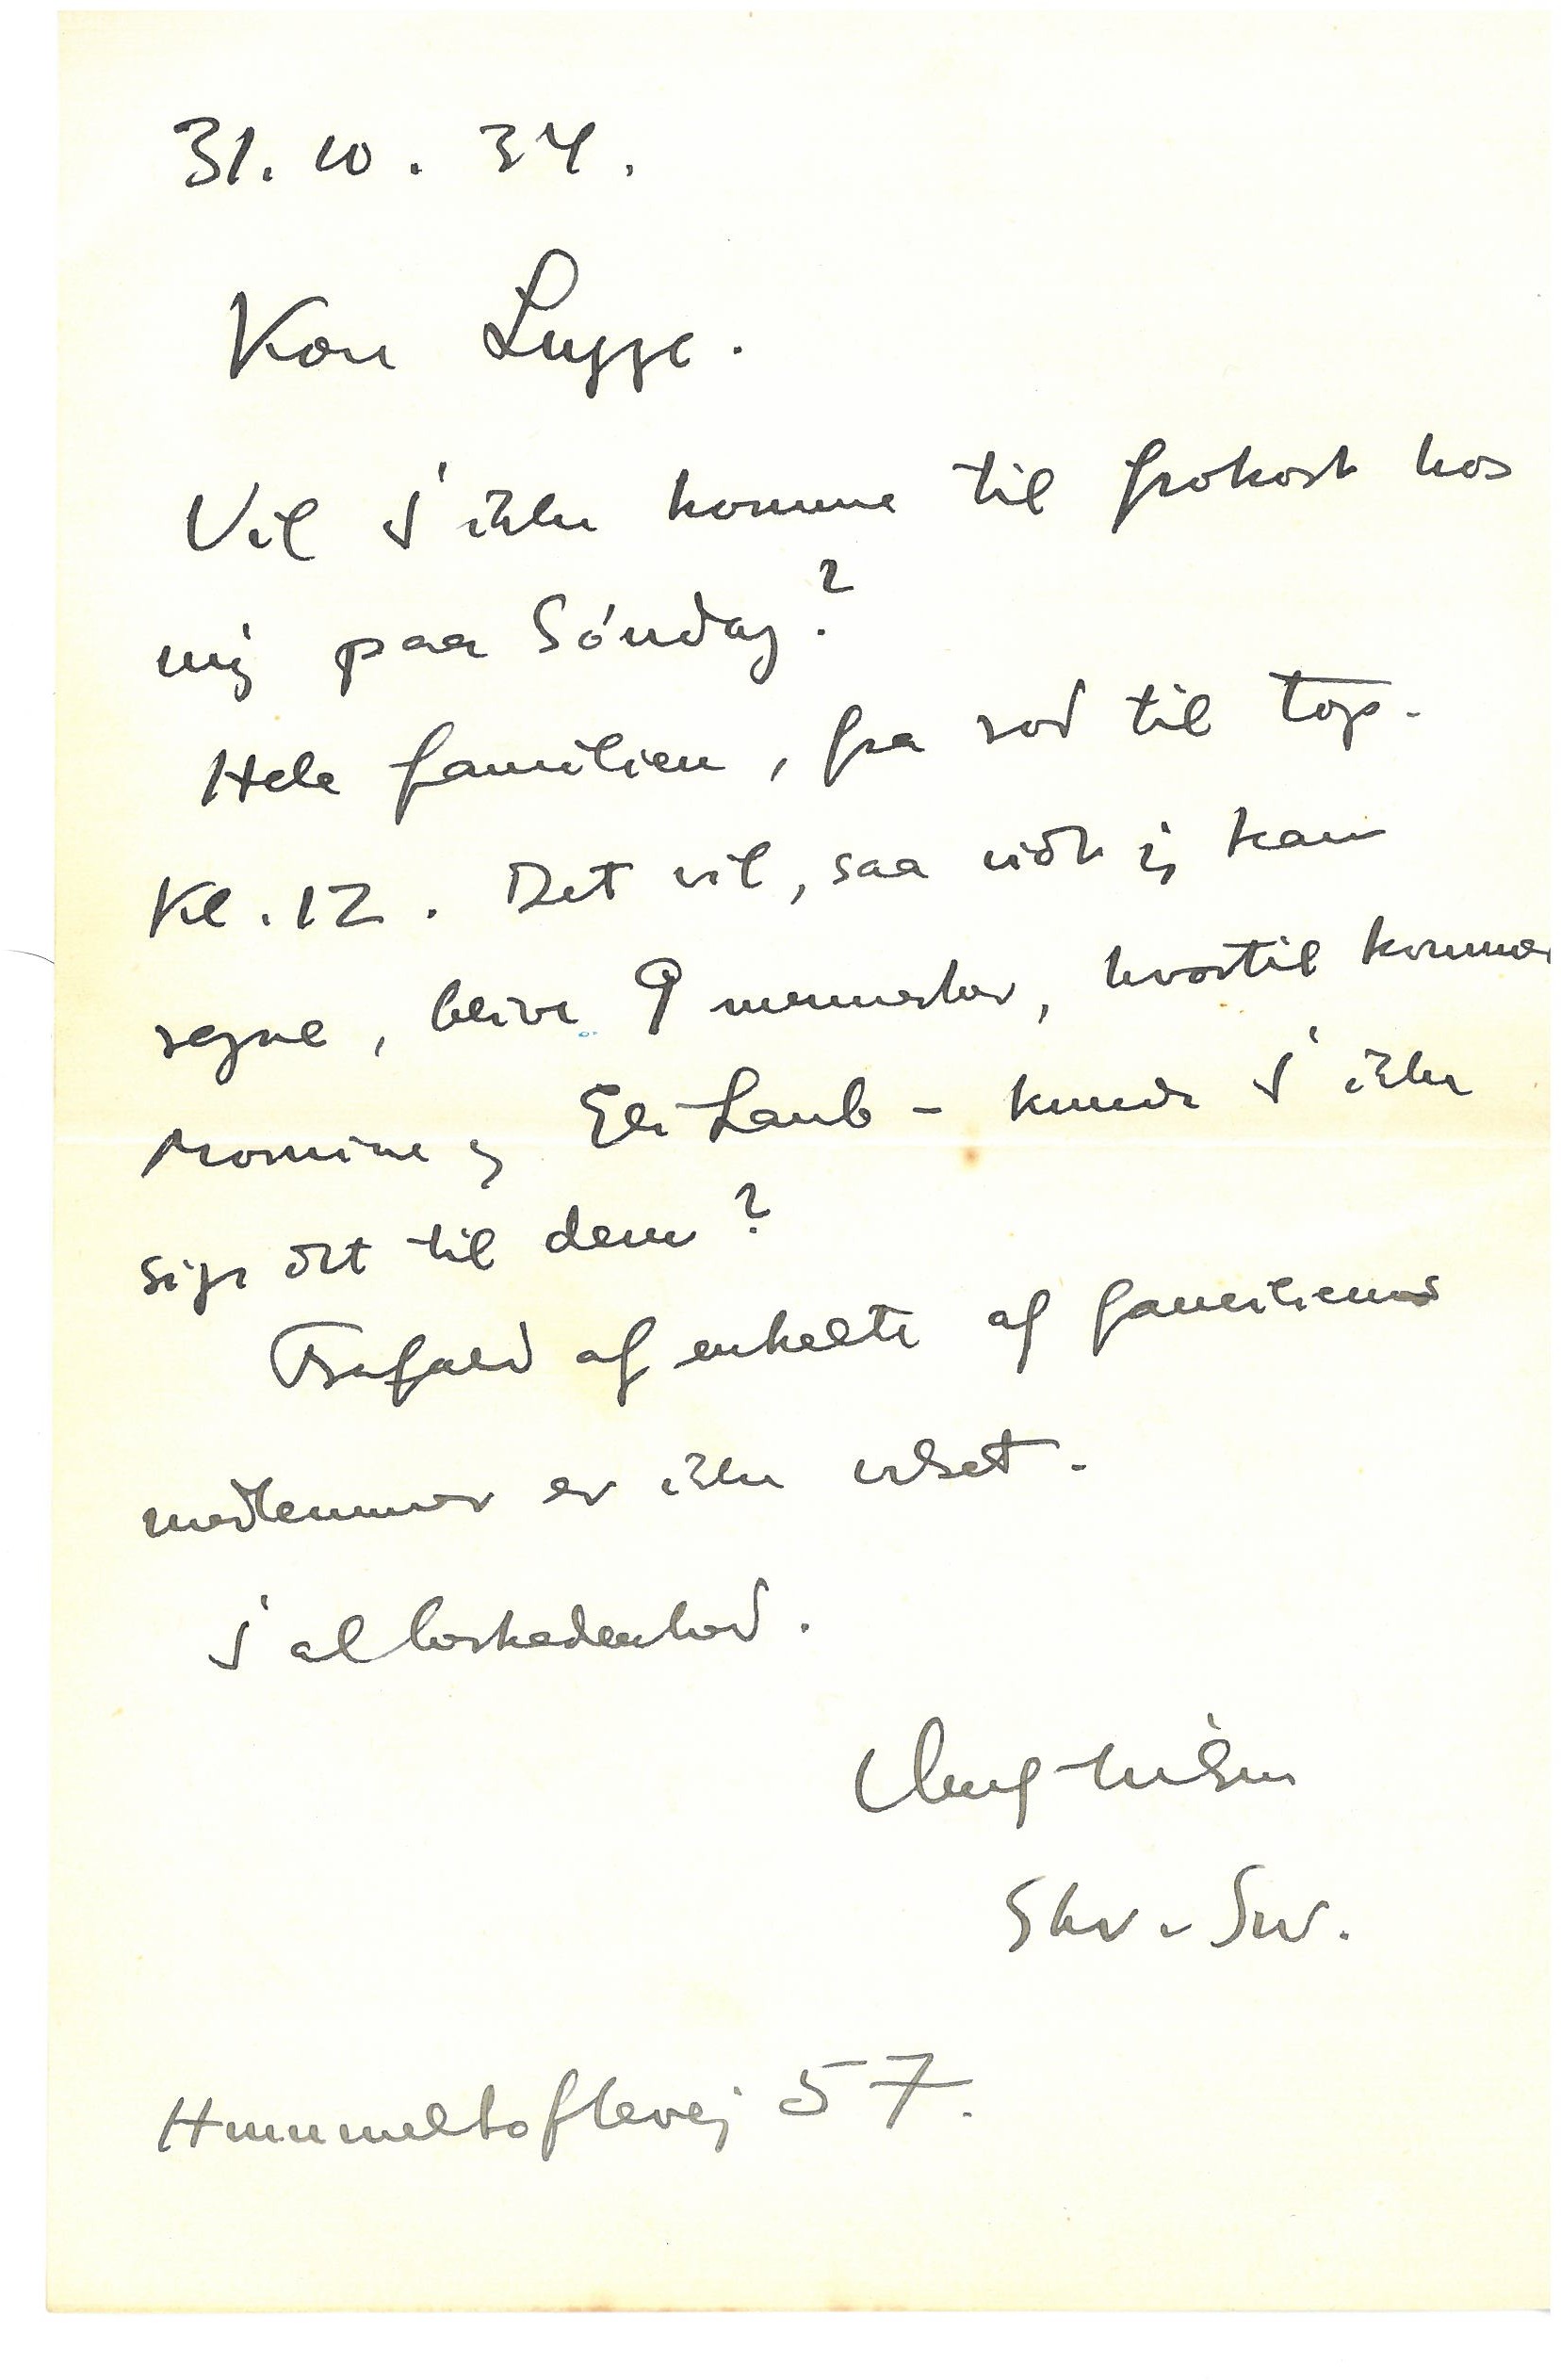 31.10.34.
Kære Lugge.
Vil I ikke komme til frokost hos
mig paa Søndag?
Hele familien, fra rod til top.
Kl. 12. Det vil, saa vidt jeg kan
regne, blive 9 mennesker, hvortil kommer
Mornine og Elli Laub – kunde I ikke
sige det til dem?
Frafald af enkelte af familiens
medlemmer er ikke velset.
I al beskedenhed.
Hummeltoftevej 57.